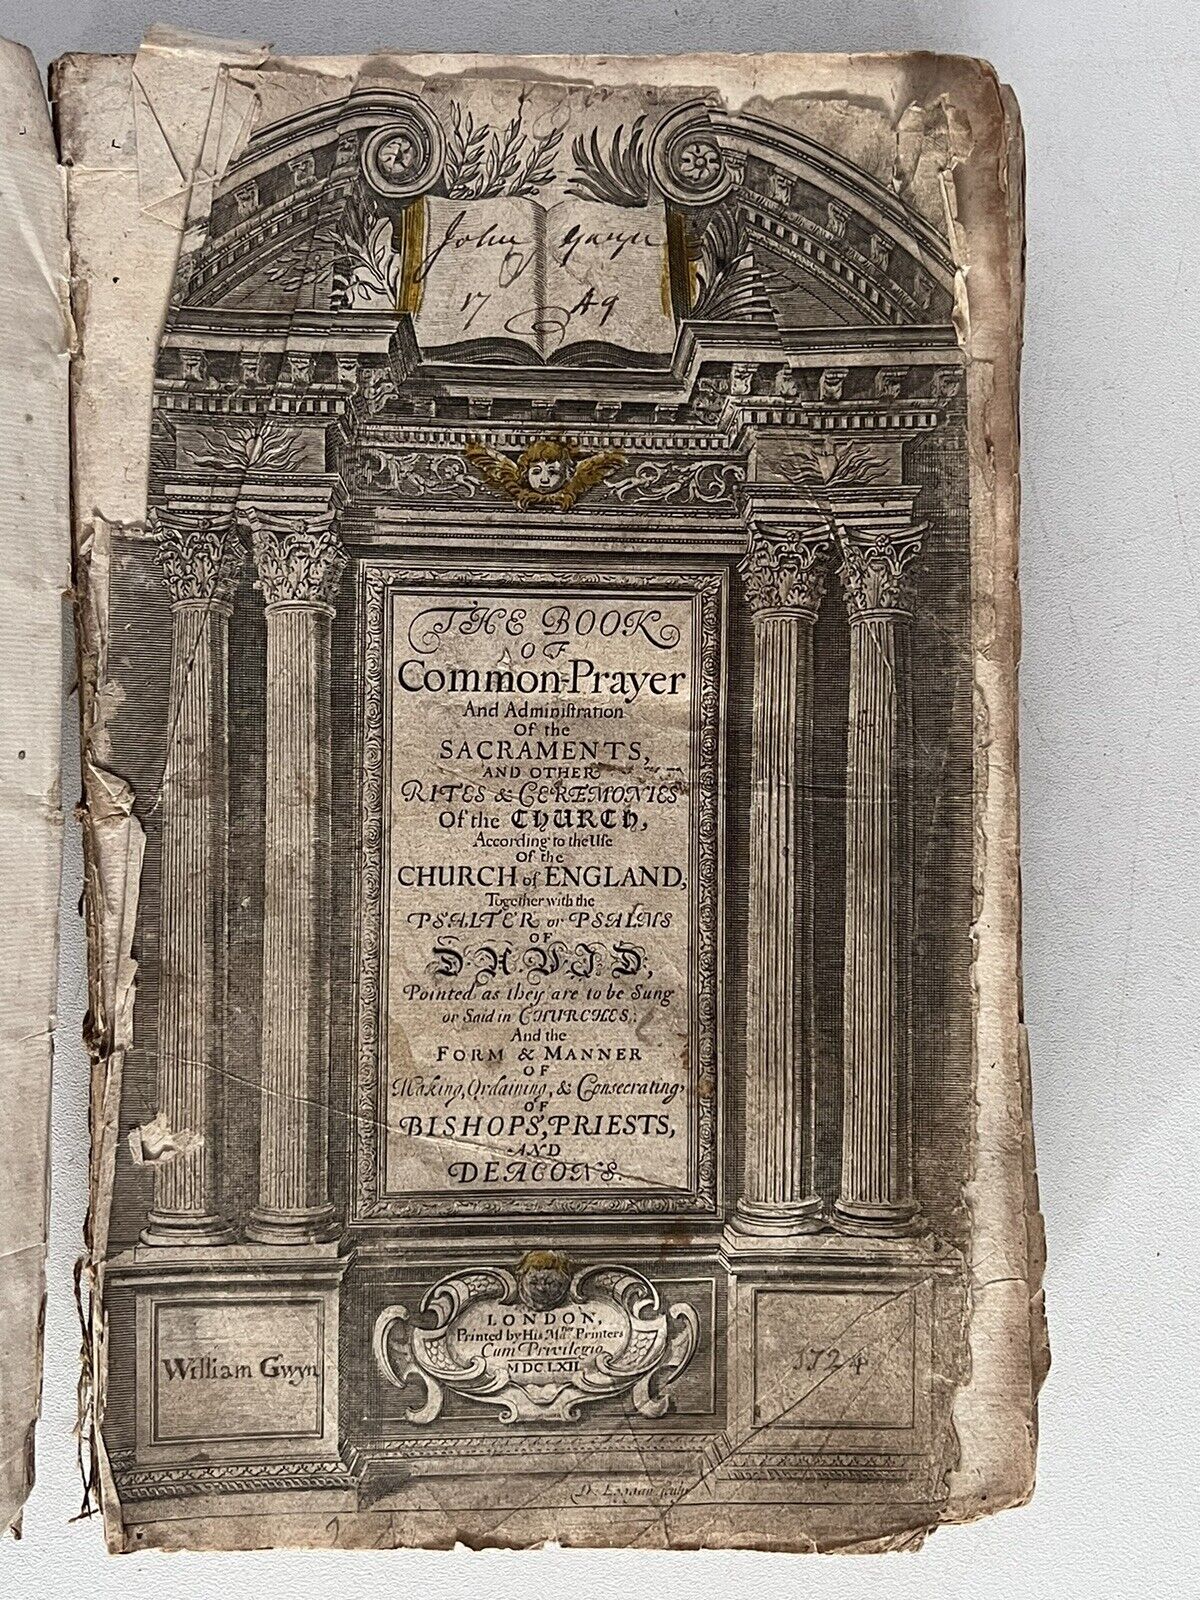 John Gwyn
17 49
THE BOOK
OF
Common-Prayer
And Adminiſtration
Of the
SACRAMENTS,
AND OTHER
RITES & CEREMONIES
Of the CHURCH,
According to the Uſe
Of the
CHURCH of ENGLAND,
Together with the
PSALTER or PSALMS
OF
D.A.V.I.D,
Pointed as they are to be Sung
or Said in CHURCHES;
And the
FORM & MANNER
OF
Making, Ordaining, & Consecrating,
OF
BISHOPS, PRIESTS,
AND
DEACONS.
LONDON,
Printed by His Ma.ties Printers
Cum Privilegio
MDCLXII
William Gwyn
1724
D. Loggan sculp.